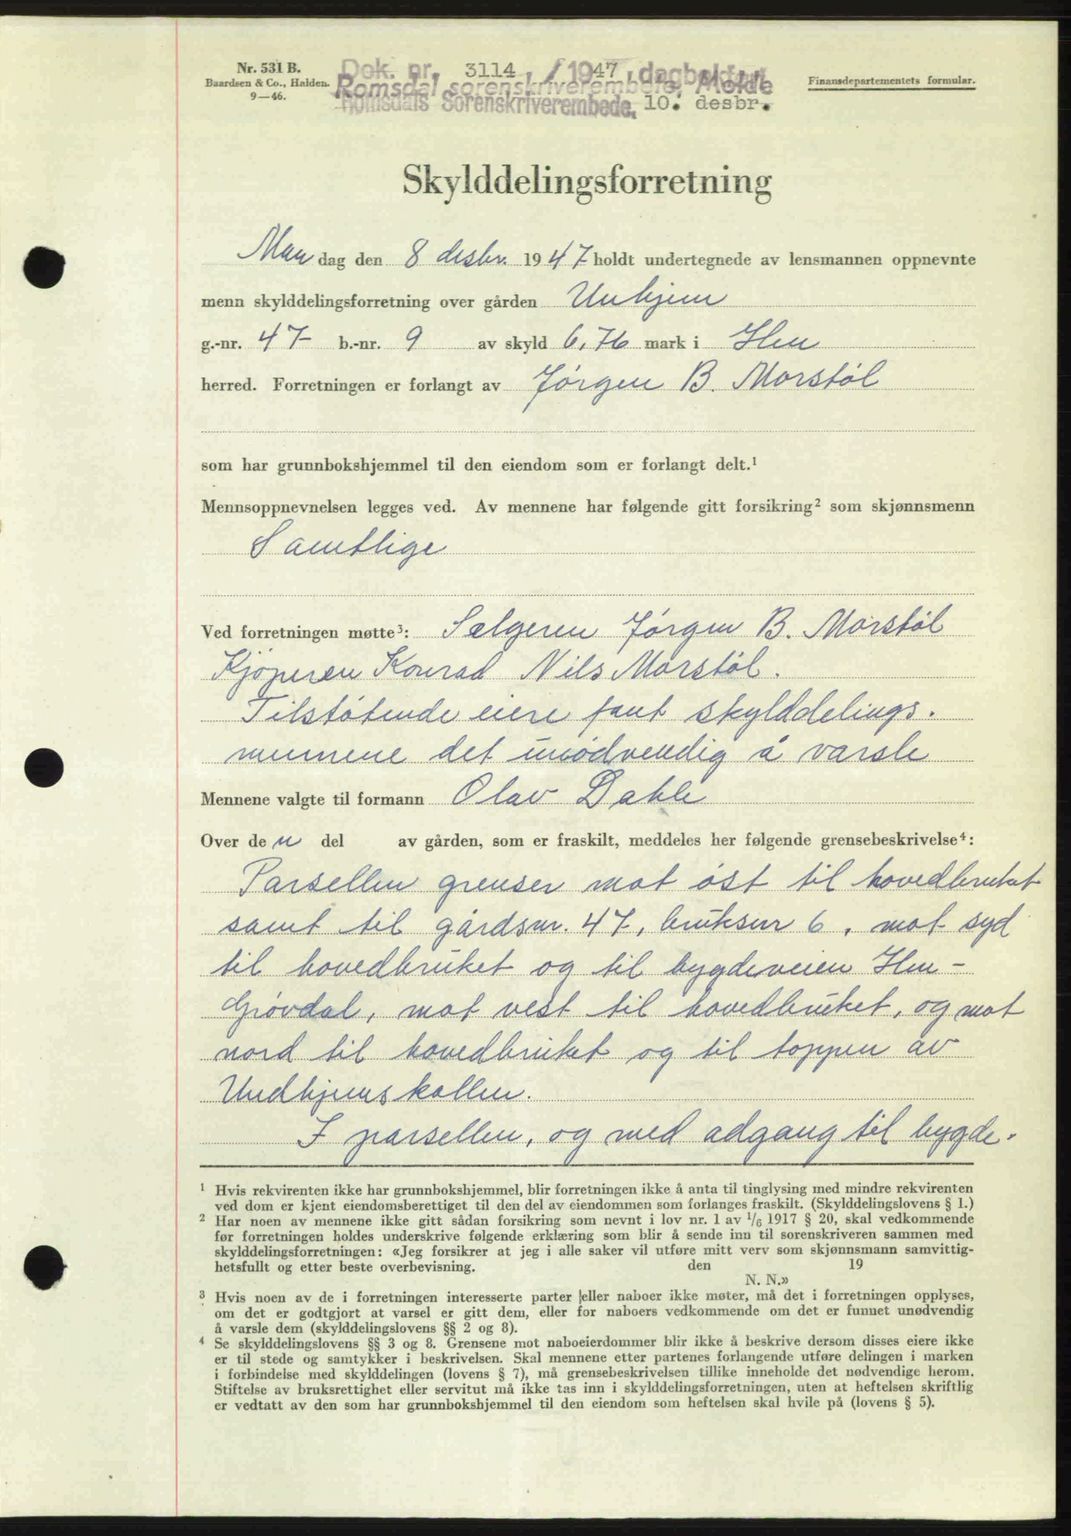 Nr. 531 B.
Baardsen & Co., Halden.
9—46.
Dok. nr. 3114 / 1947, dagboken
Romsdal sorenskriverembete, Molde
Romsdals Sorenskriverembede, 10. desbr.
Finansdepartementets formular.
Skylddelingsforretning
Man dag den 8 desbr. 1947 holdt undertegnede av lensmannen oppnevnte
menn skylddelingsforretning over gården Unhjem
g.-nr. 47 b.-nr. 9 av skyld 6,76 mark i Hen
herred. Forretningen er forlangt av Jørgen B. Morstøl
som har grunnbokshjemmel til den eiendom som er forlangt delt.¹
Mennsoppnevnelsen legges ved. Av mennene har følgende gitt forsikring² som skjønnsmenn
Samtlige
Ved forretningen møtte³: Selgeren Jørgen B. Morstøl
Kjøperen Konrad Nils Morstøl.
Tilstøtende eiere fant skylddelings-
mennene det unødvendig å varsle
Mennene valgte til formann Olav Dahle
Over den del av gården, som er fraskilt, meddeles her følgende grensebeskrivelse⁴:
Parsellen grenser mot øst til hovedbruket
samt til gårdsnr. 47, bruksnr 6, mot syd
til hovedbruket og til bygdeveien Hen-
Grøvdal, mot vest til hovedbruket, og mot
nord til hovedbruket og til toppen av
Undhjemskollen.
I parsellen, og med adgang til bygde-
¹ Hvis rekvirenten ikke har grunnbokshjemmel, blir forretningen ikke å anta til tinglysing med mindre rekvirenten
ved dom er kjent eiendomsberettiget til den del av eiendommen som forlanges fraskilt. (Skylddelingslovens § 1.)
² Har noen av mennene ikke gitt sådan forsikring som nevnt i lov nr. 1 av 1/6 1917 § 20, skal vedkommende
før forretningen holdes underskrive følgende erklæring som blir å sende inn til sorenskriveren sammen med
skylddelingsforretningen: «Jeg forsikrer at jeg i alle saker vil utføre mitt verv som skjønnsmann samvittig-
hetsfullt og etter beste overbevisning. den 19
N. N.»
³ Hvis noen av de i forretningen interesserte parter eller naboer ikke møter, må det i forretningen opplyses,
om det er godtgjort at varsel er gitt dem, eller for naboers vedkommende om det er funnet unødvendig
å varsle dem (skylddelingslovens §§ 2 og 8).
⁴ Se skylddelingslovens §§ 3 og 8. Grensene mot naboeierdommer blir ikke å beskrive dersom disses eiere ikke
er til stede og samtykker i beskrivelsen. Skal mennene etter partenes forlangende utføre delingen i marken
i forbindelse med skylddelingen (lovens § 7), må grensebeskrivelsen tillike inneholde det nødvendige herom.
Stiftelse av bruksrettighet eller servitut må ikke tas inn i skylddelingsforretningen, uten at heftelsen skriftlig
er vedtatt av den som har grunnbokshjemmel til den eiendom som heftelsen skal hvile på (lovens § 5).